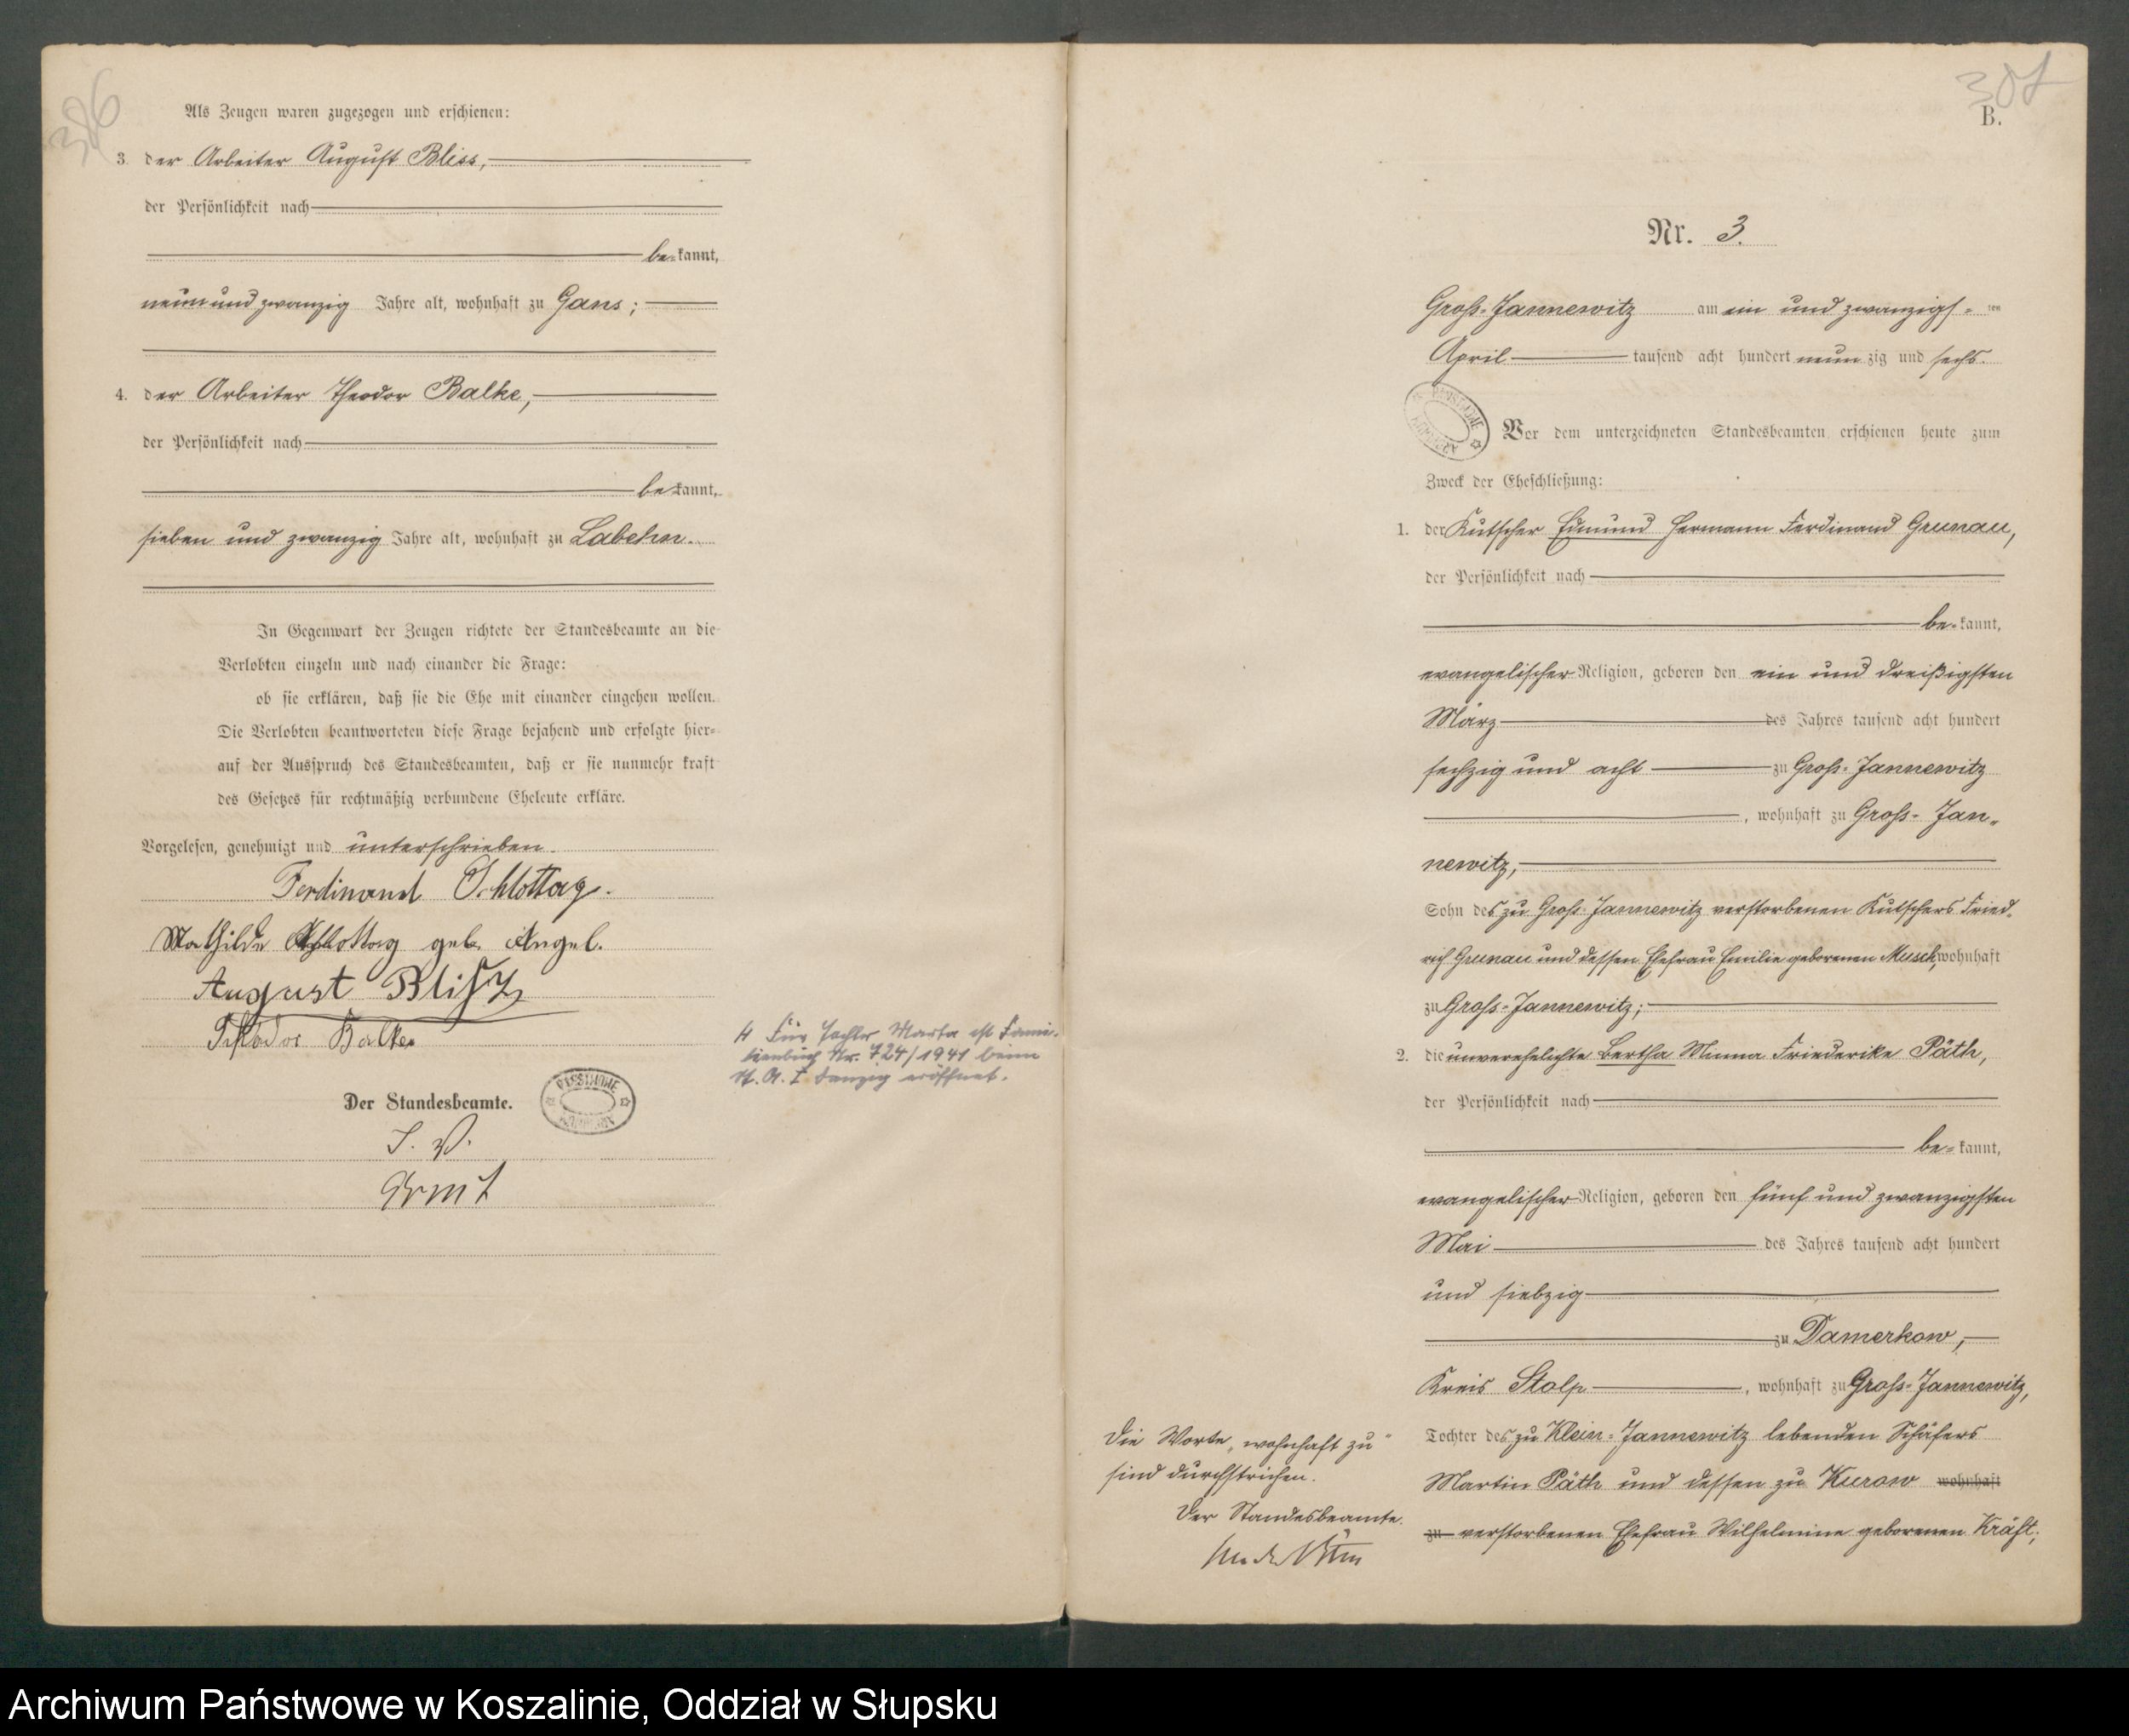 386
Als Zeugen waren zugezogen und erschienen:
3. der Arbeiter August Bliss,
der Persönlichkeit nach
be-kannt,
neun und zwanzig Jahre alt, wohnhaft zu Gans;
4. der Arbeiter Theodor Balke,
der Persönlichkeit nach
bekannt,
sieben und zwanzig Jahre alt, wohnhaft zu Labehn.
In Gegenwart der Zeugen richtete der Standesbeamte an die
Verlobten einzeln und nach einander die Frage:
ob sie erklären, daß sie die Ehe mit einander eingehen wollen.
Die Verlobten beantworteten diese Frage bejahend und erfolgte hier-
auf der Ausspruch des Standesbeamten, daß er sie nunmehr kraft
des Gesetzes für rechtmäßig verbundene Eheleute erkläre.
Vorgelesen, genehmigt und unterschrieben.
Ferdinand Schlottag.
Mathilde Schlottag geb. Angel.
August Blißs
Theodor Balke
Für Tochter Marta ist Fami-
lienbuch Nr. 724/1941 beim
St. A. I Danzig eröffnet.
Der Standesbeamte.
J. V.
387
B.
Nr. 3.
Groß-Jannewitz am ein und zwanzigs-ten
April tausend acht hundert neunzig und sechs.
Vor dem unterzeichneten Standesbeamten erschienen heute zum
Zweck der Eheschließung:
1. der Kutscher Edmund Hermann Ferdinand Grunau,
der Persönlichkeit nach
be-kannt,
evangelischer Religion, geboren den ein und dreißigsten
März des Jahres tausend acht hundert
sechzig und acht zu Groß-Jannewitz
, wohnhaft zu Groß-Jan-
newitz,
Sohn des zu Groß-Jannewitz verstorbenen Kutschers Fried-
rich Grunau und dessen Ehefrau Emilie geborenen Musch, wohnhaft
zu Groß-Jannewitz;
2. die unverehelichte Bertha Minna Friederike Päth,
der Persönlichkeit nach
be-kannt,
evangelischer Religion, geboren den fünf und zwanzigsten
Mai des Jahres tausend acht hundert
und siebzig
zu Damerkow,
Kreis Stolp, wohnhaft zu Groß-Jannewitz,
Tochter des zu Klein-Jannewitz lebenden Schäfers
Martin Päth und dessen zu Kurow wohnhaft
zu verstorbenen Ehefrau Wilhelmine geborenen Kräft;
Die Worte „wohnhaft zu"
sind durchstrichen.
Der Standesbeamte.
Archiwum Państwowe w Koszalinie, Oddział w Słupsku